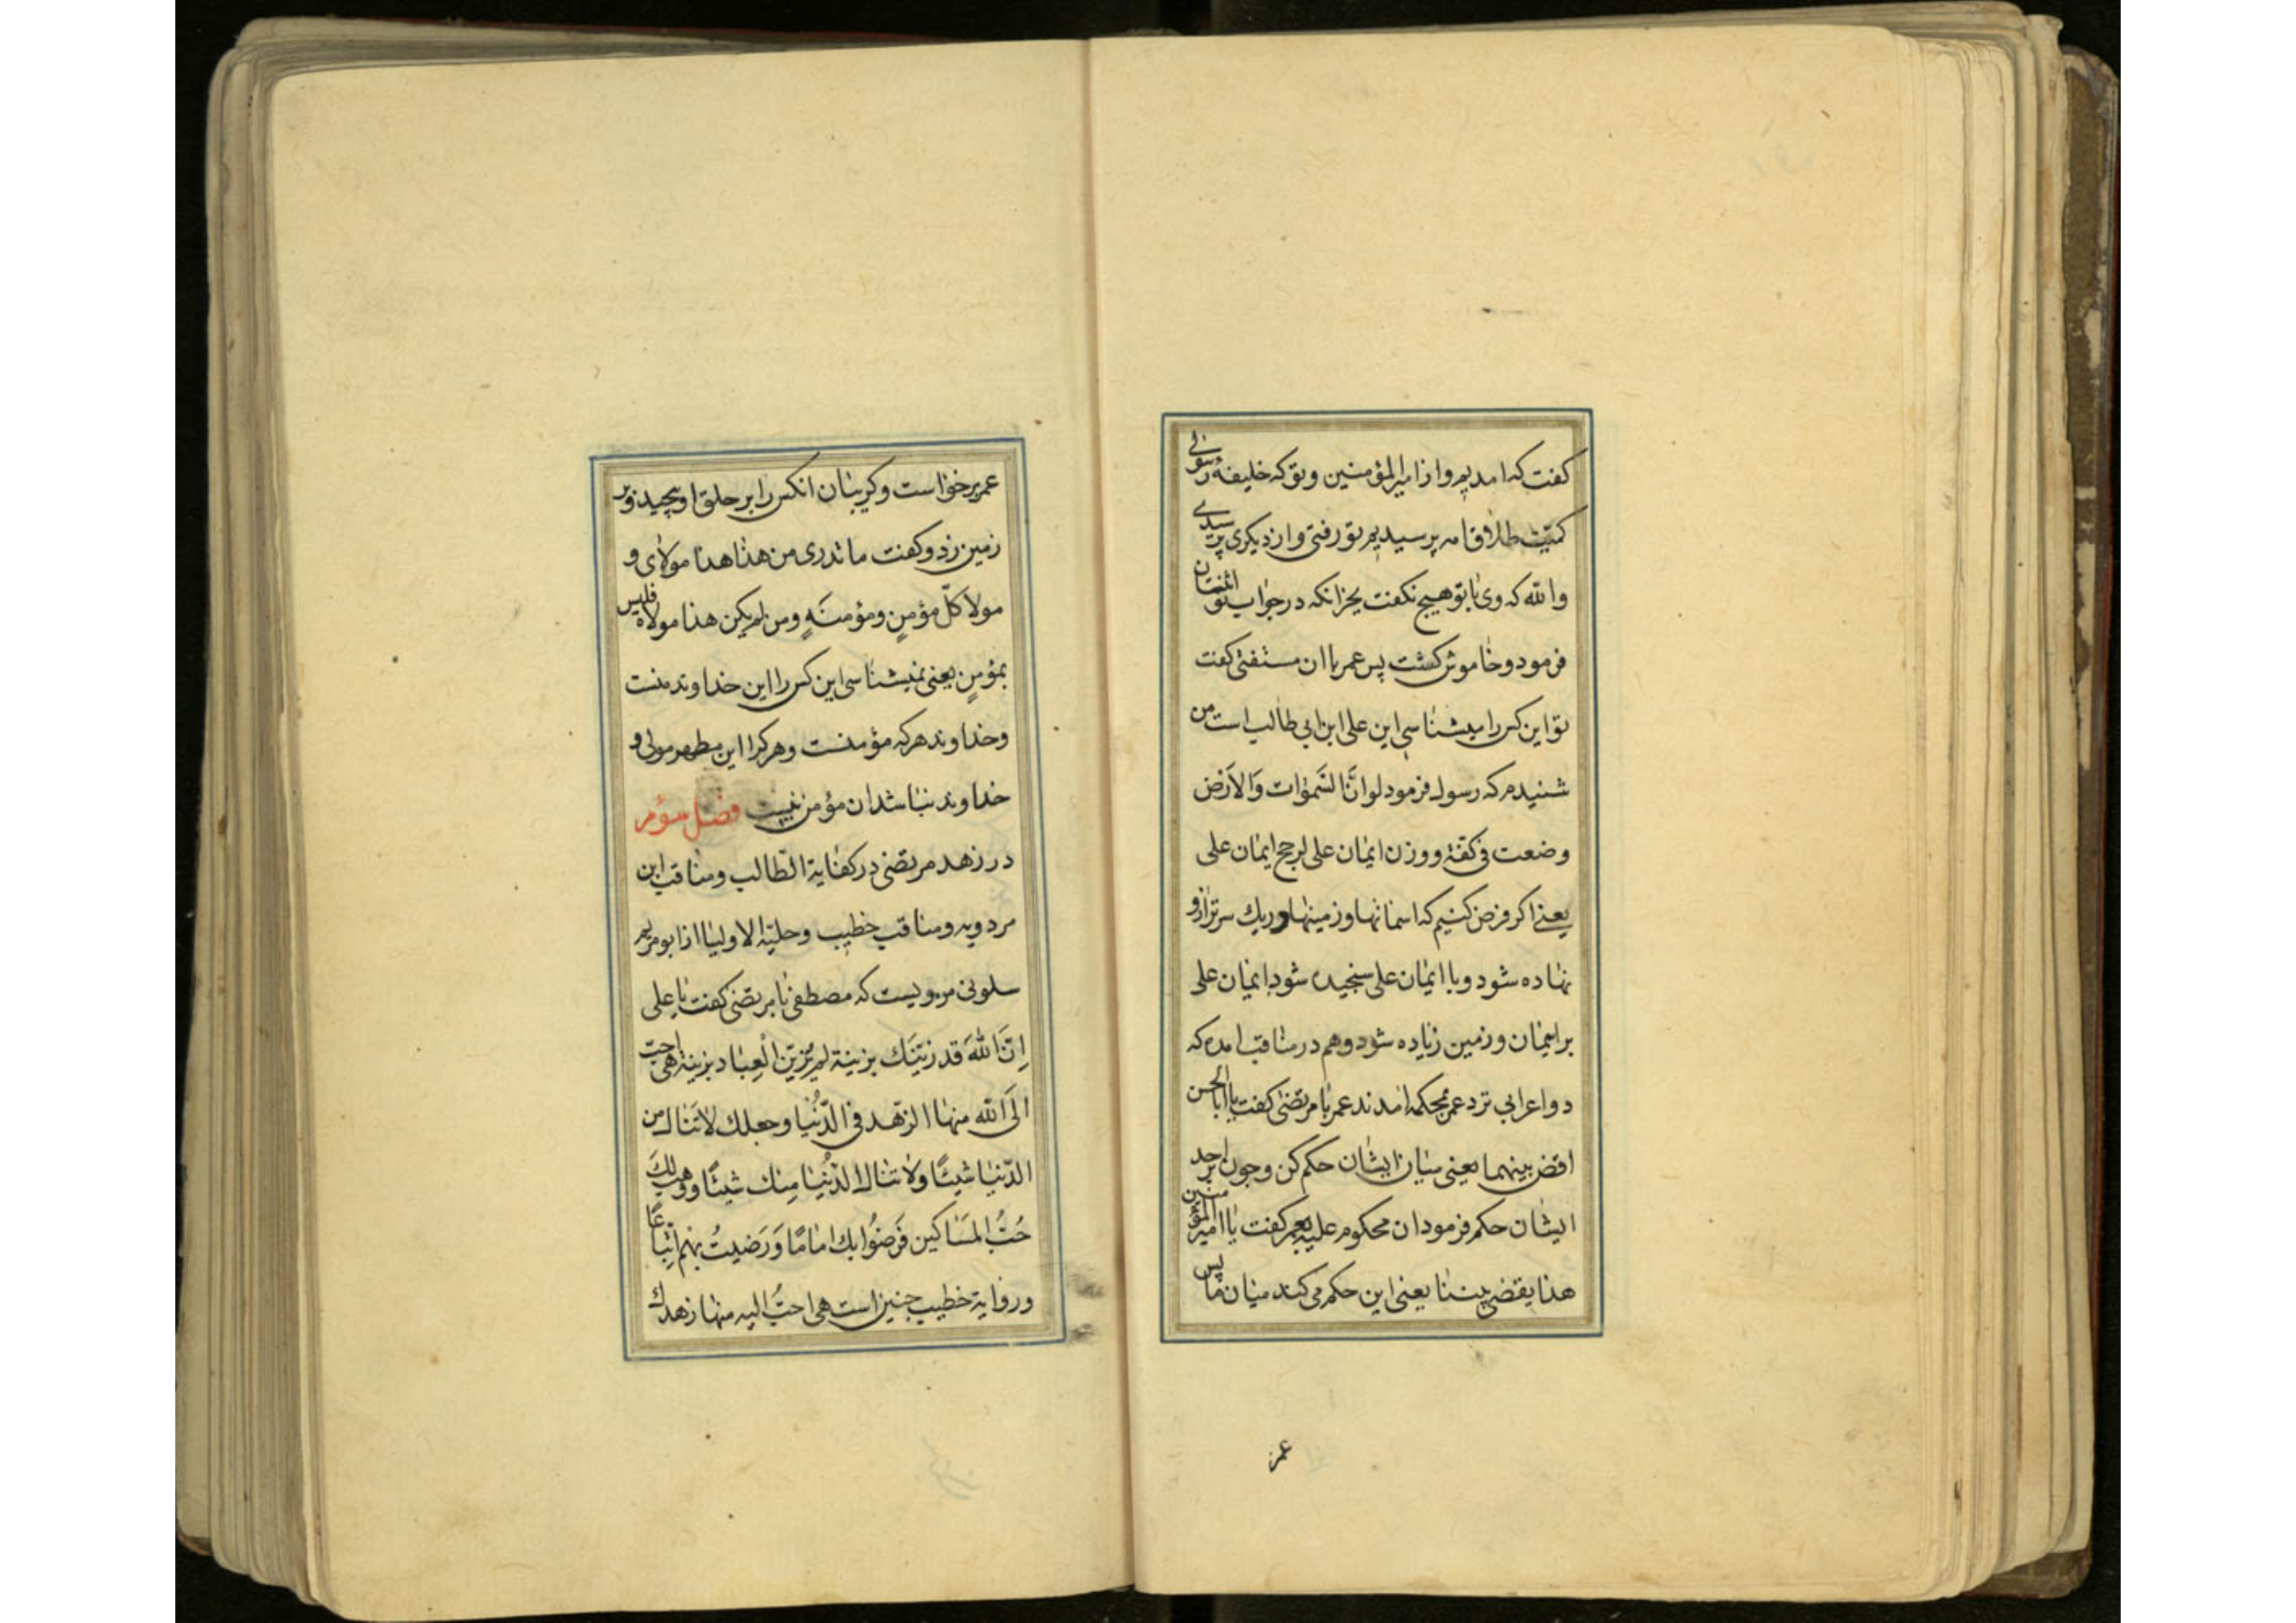 کفت که امدیم و از امیرالمؤمنین و تو که خلیفهٔ رسولی
کمیّت طلاق امه پرسیدیم تو رفتی و از دیکری پرسیدی
والله که وی با تو هیچ نکفت بجز انکه در جواب تو اثنتان
فرمود و خاموش کشت پس عمر با ان مستفتی کفت
تو این کس را میشناسی این علی ابن ابی طالب است من
شنیدم که رسول فرمود لو انّ السّموات والارض
وضعت فی کفّة و وزن ایمان علی لرجح ایمان علی
یعنی اکر فرض کنیم که اسمانها و زمینها در یك سر ترازو
نهاده شود و با ایمان علی سنجیده شود ایمان علی
بر اسمان و زمین زیاده شود و هم در مناقب امده که
دو اعرابی نزد عمر بمحکمه امدند عمر با مرتضی کفت یا ابا الحسن
اقض بینهما یعنی میان ایشان حکم کن و چون بر احد
ایشان حکم فرمود ان محکوم علیه بعمر کفت یا امیر المؤمنین
هذا یقضی بیننا یعنی این حکم می کند میان ما پس
عمر
عمر برخواست و کریبان انکس را بر حلق او پیچید و بر
زمین زد و کفت ما تدری من هذا هذا مولای و
مولا کلّ مؤمنٍ ومؤمنةٍ ومن لم یکن هذا مولاه فلیس
بمؤمنٍ یعنی نمیشناسی این کس را این خداوند منست
و خداوند هر که مؤمنست و هر کرا این مطهر مولی و
خداوند نباشد ان مؤمن نیست فصل سؤم
در زهد مرتضی در کفایة الطّالب و مناقب ابن
مردویه و مناقب خطیب و حلیة الاولیا از ابو مریم
سلولی مرویست که مصطفی با مرتضی کفت یا علی
اِنّ اللهَ قد زیّنَك بزینة لم یُزیّن الْعِباد بزینة هی احبّ
الَی الله منها الزّهد فی الدُّنْیا وجعلك لا تَنال من
الدّنیا شیئًا ولا تنال الدُّنیا مِنك شیئًا ووهب لكَ
حُبُّ المَساکین فَرَضُوا بك امامًا وَرَضیتُ بهم اتباعًا
و روایة خطیب چنین است هی احبُّ الیه منها زهدك